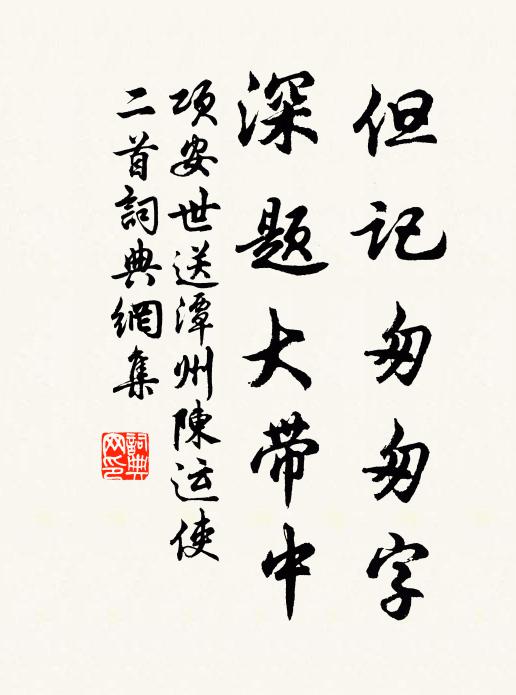 但记匆匆字
深题大带中
项安世送潭州陳运使
二首詞典網集
詞典网印